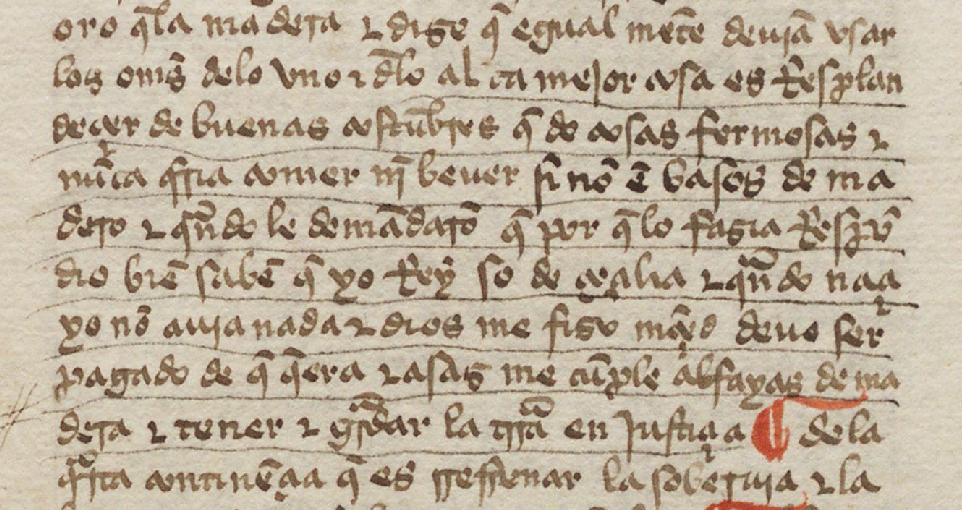 oro q̃ la madera ⁊ dize q̃ egual mẽte deuiã vsar
los om̃s delo vno ⁊ dlo al ca mejor cosa es Resplan
deçer de buenas costũbres q̃ de cosas fermosas ⁊
nũca q̃ria comer nj̃ beuer si nõ ẽ basos de ma
dero ⁊ qñdo le demãdarõ q̃ por q̃ lo fazia Respõ
dio biẽ sabẽ q̃ yo Rey so de çeçilia ⁊ qñdo naçi
yo nõ auia nada ⁊ dios me fizo mc̃ed deuo ser
pagado de q̃ q̃era ⁊ asas me cũple alfayas de ma
dera ⁊ tener ⁊ gr̃dar la trr̃a en justiçia ¶ dela
q̃rta continẽçia q̃ es rrefrenar la soberuia ⁊ la